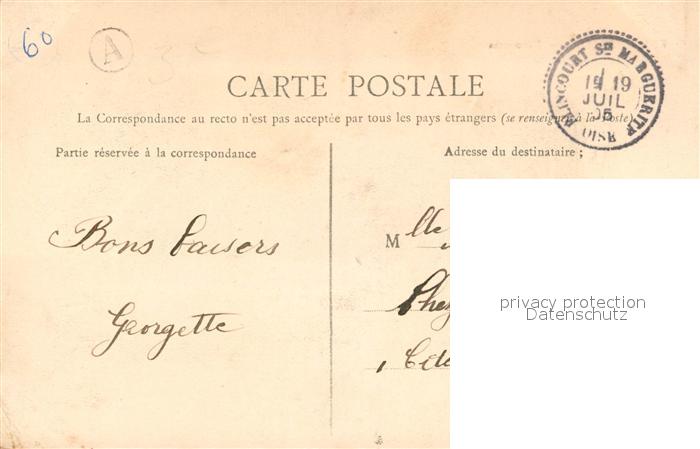 60
A
ÉLINCOURT STE MARGUERITE
19
JUIL
05
OISE
CARTE POSTALE
La Correspondance au recto n'est pas acceptée par tous les pays étrangers (se renseigner à la Poste)
Partie réservée à la correspondance
Adresse du destinataire ;
Mlle
Bons baisers
Chez
Georgette
privacy protection
Datenschutz